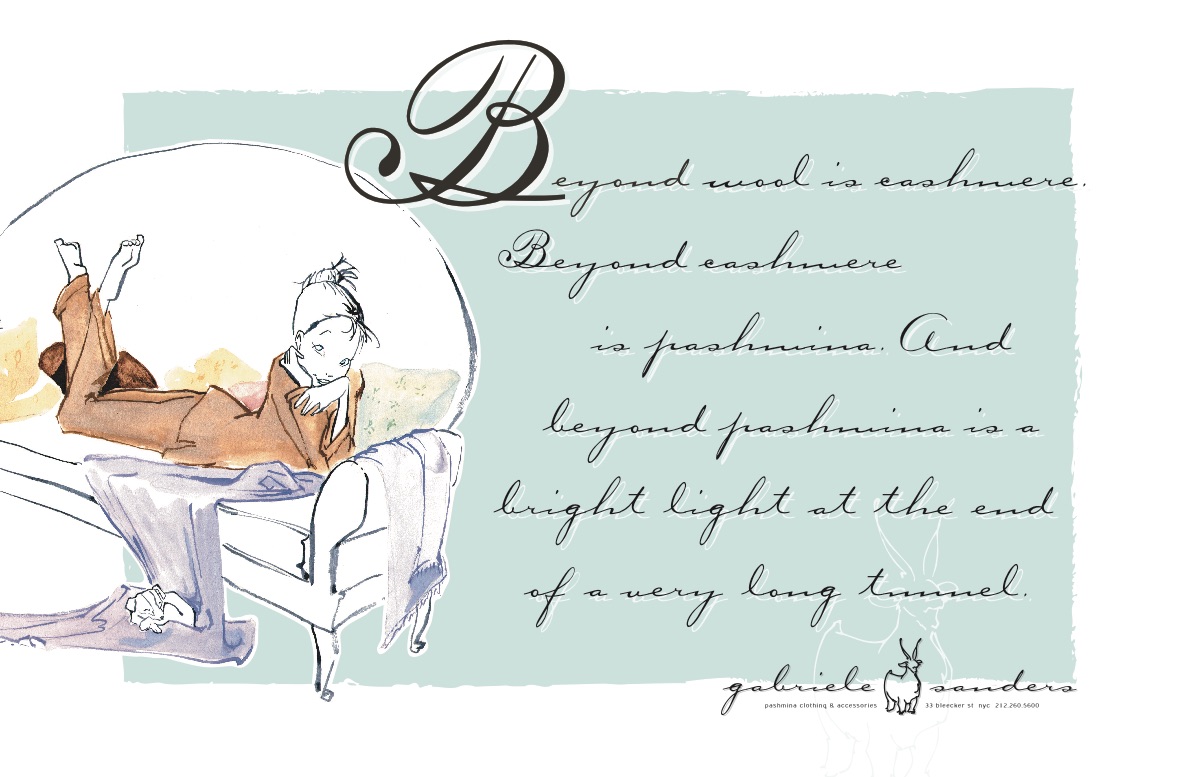 Beyond wool is cashmere.
Beyond cashmere
is pashmina. And
beyond pashmina is a
bright light at the end
of a very long tunnel.
gabriele sanders
pashmina clothing & accessories 33 bleecker st nyc 212.260.5600